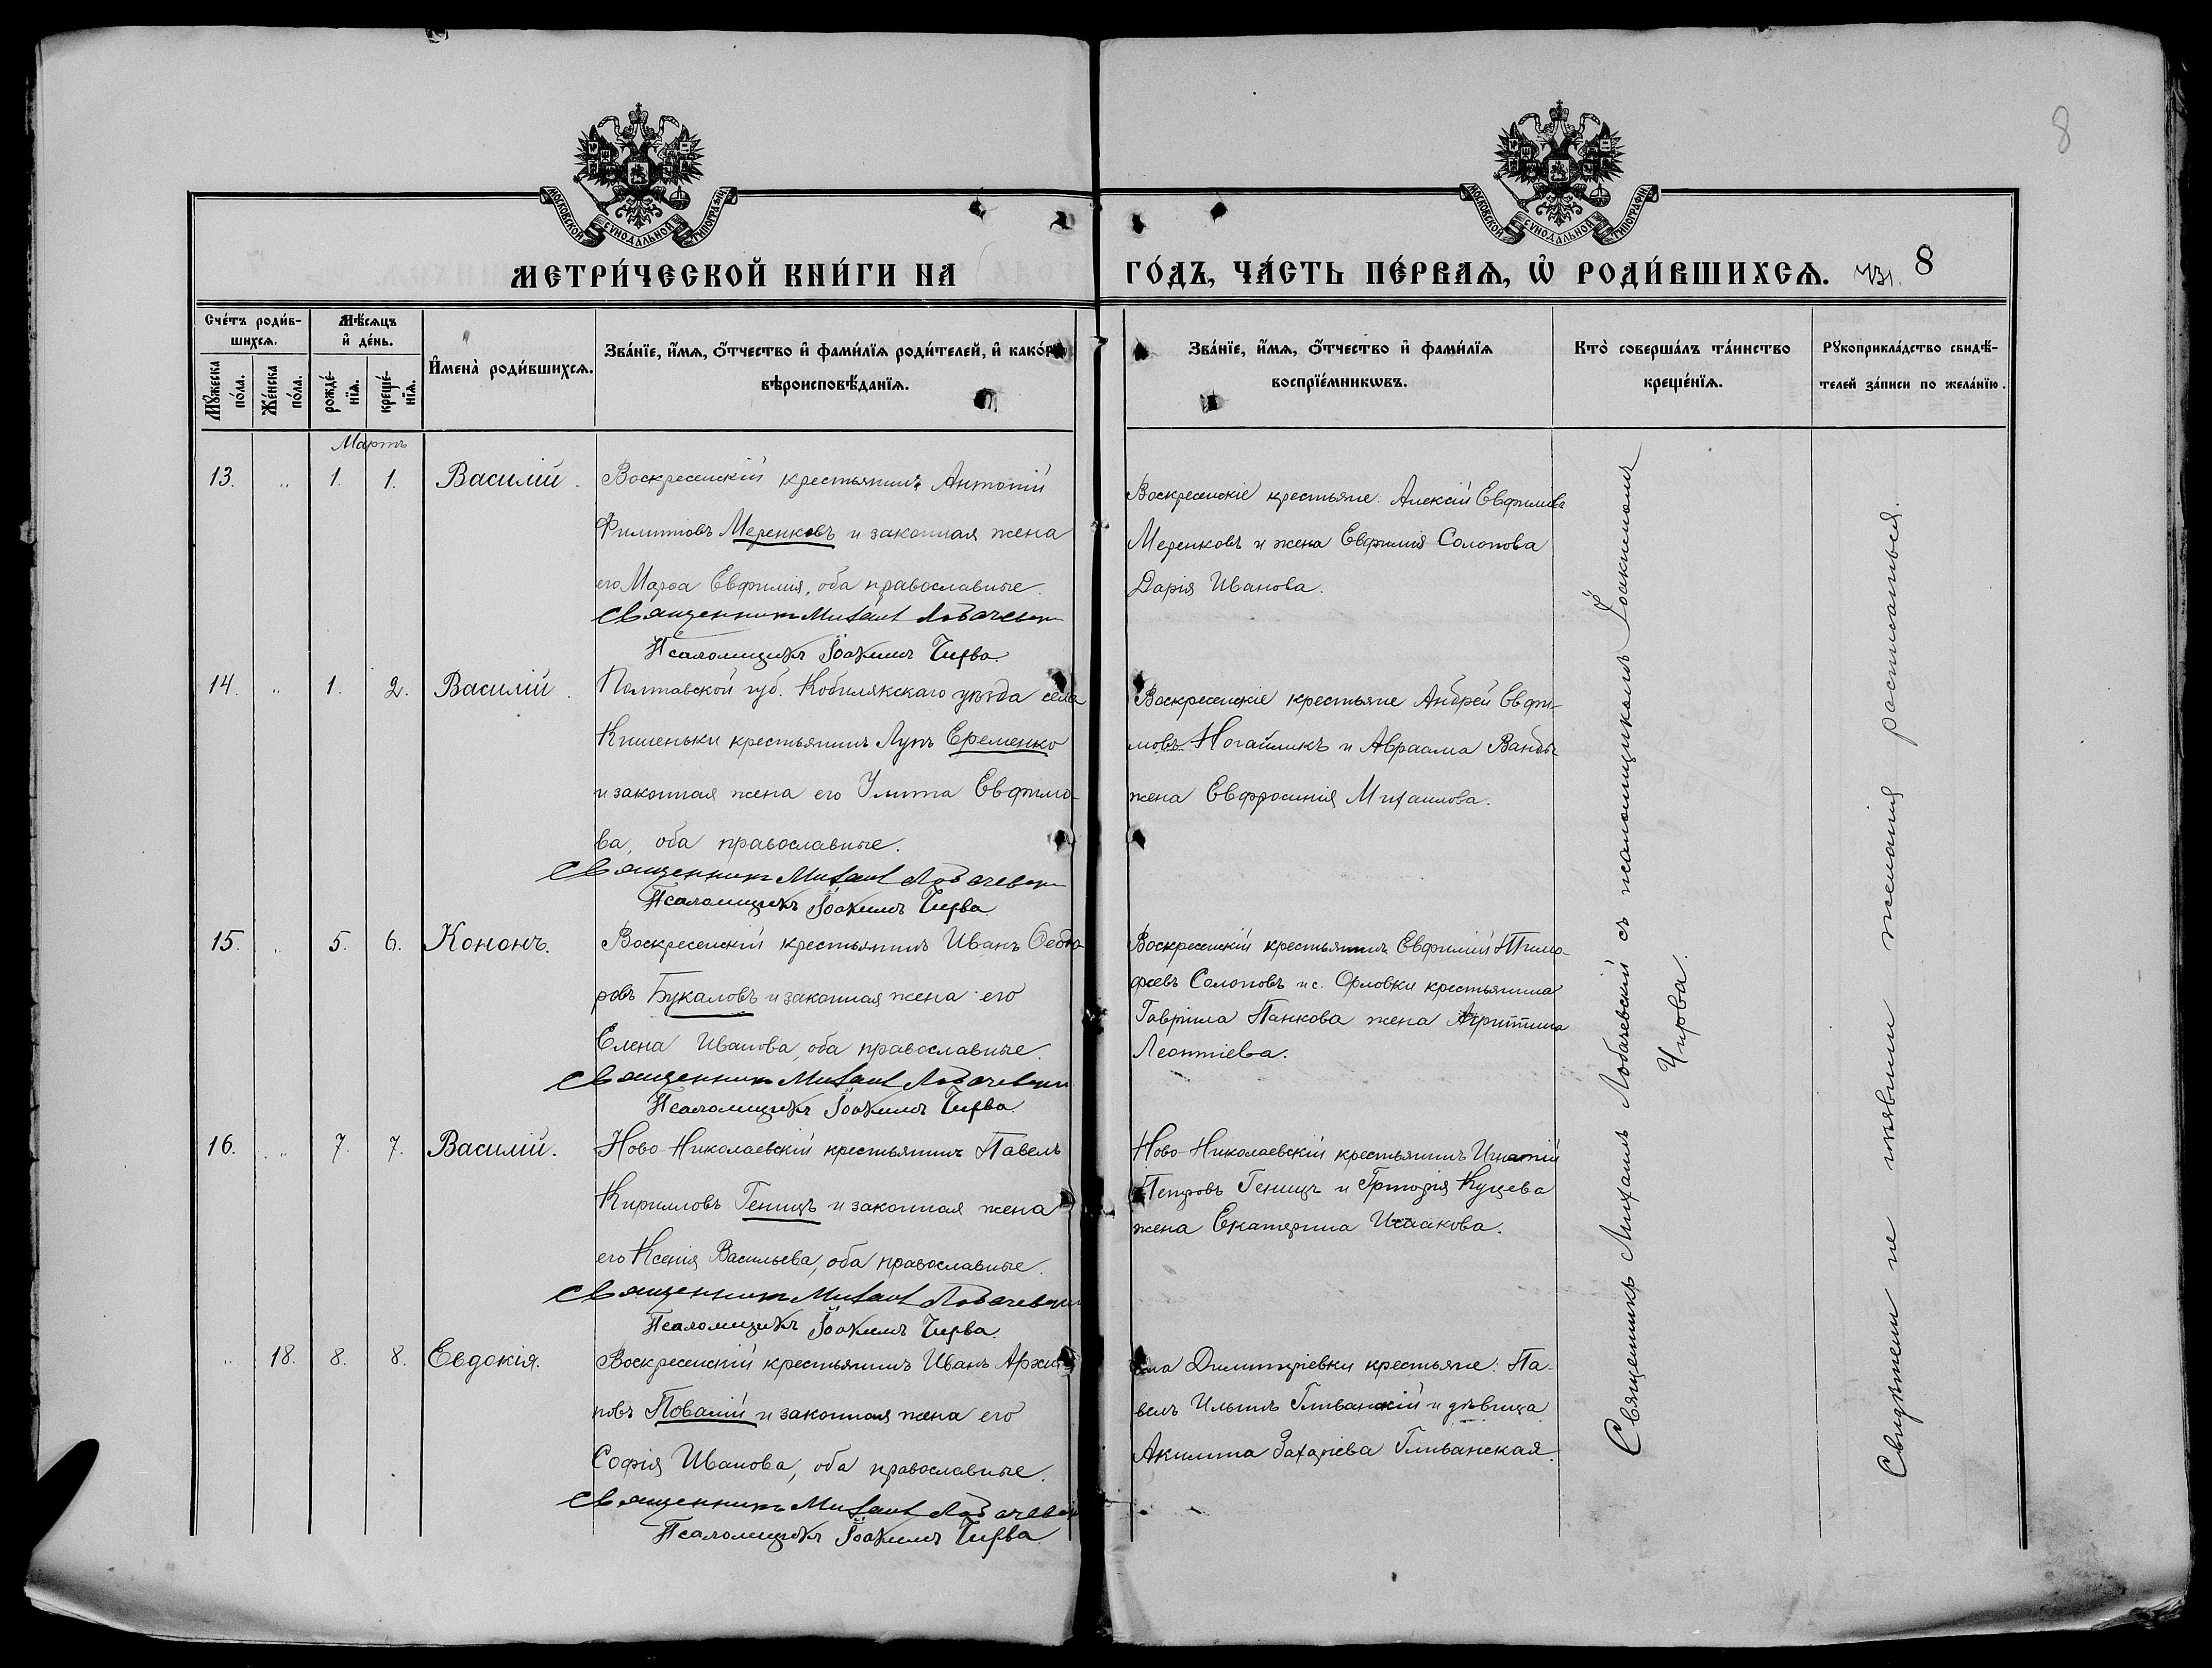 8
МОСКОВСКОЙ СѴНОДАЛЬНОЙ ТИПОГРАФІИ
МОСКОВСКОЙ СѴНОДАЛЬНОЙ ТИПОГРАФІИ
МЕТРИ́ЧЕСКОЙ КНИ́ГИ НА ГО́ДЪ, ЧА́СТЬ ПЕ́РВАѦ, Ѡ҆ РОДИ́ВШИХСѦ. 8
Сче́тъ роди́в-
шихсѧ.
Мꙋ́жеска по́ла.
Же́нска по́ла.
Мѣ́сѧцъ
и҆ де́нь.
рожде́нїѧ.
креще́нїѧ.
И҆мена̀ роди́вшихсѧ.
Зва́нїе, и҆́мѧ, ѻ҆́тчество и҆ фами́лїѧ роди́телей, и҆ како́гѡ
вѣроисповѣ́данїѧ.
Зва́нїе, и҆́мѧ, ѻ҆́тчество и҆ фами́лїѧ
воспрїе́мникѡвъ.
Кто̀ соверша́лъ та́инство
креще́нїѧ.
Рꙋкоприкла́дство свидѣ́-
телей за́писи по жела́нїю.
Мартъ
13. „ 1. 1. Василій.
Воскресенскій крестьянинъ Антоній
Филиповъ Меренковъ и законная жена
его Марѳа Евфимія, оба православные.
Священникъ Михаилъ Лобачевскій
Псаломщикъ Іоакимъ Чирва.
Воскресенскіе крестьяне: Алексій Евфимовъ
Меренковъ и жена Евфимія Солопова
Дарія Иванова.
14. „ 1. 2. Василій.
Полтавской губ. Кобилякскаго уѣзда села
Кишеньки крестьянинъ Лупъ Еременко
и законная жена его Улита Евфимо-
ва, оба православные.
Священникъ Михаилъ Лобачевскій
Псаломщикъ Іоакимъ Чирва.
Воскресенскіе крестьяне Андрей Евфи-
мовъ Ногайникъ и Авраама Вандъ
жена Евфросинія Михаилова.
15. „ 5. 6. Кононъ.
Воскресенскій крестьянинъ Иванъ Ѳеодо-
ровъ Букаловъ и законная жена его
Елена Иванова, оба православные.
Священникъ Михаилъ Лобачевскій
Псаломщикъ Іоакимъ Чирва.
Воскресенскій крестьянинъ Евфимій Тимо-
феевъ Солоповъ и с. Орловки крестьянина
Гавріила Панкова жена Агрипина
Леонтіева.
16. „ 7. 7. Василій.
Ново-Николаевскій крестьянинъ Павелъ
Кирилловъ Геницъ и законная жена
его Ксенія Васильева, оба православные.
Священникъ Михаилъ Лобачевскій
Псаломщикъ Іоакимъ Чирва.
Ново-Николаевскій крестьянинъ Игнатій
Петровъ Геницъ и Григорія Куцева
жена Екатерина Исаакова.
„ 18. 8. 8. Евдокія.
Воскресенскій крестьянинъ Иванъ Архи-
повъ Повалій и законная жена его
Софія Иванова, оба православные.
Священникъ Михаилъ Лобачевскій
Псаломщикъ Іоакимъ Чирва.
села Димитріевки крестьяне: Па-
велъ Ильинъ Гливанскій и дѣвица
Акилина Захаріева Гливанская.
Священникъ Михаилъ Лобачевскій съ псаломщикомъ Іоакимомъ
Чирва.
Свидѣтели не изъявили желанія росписаться.